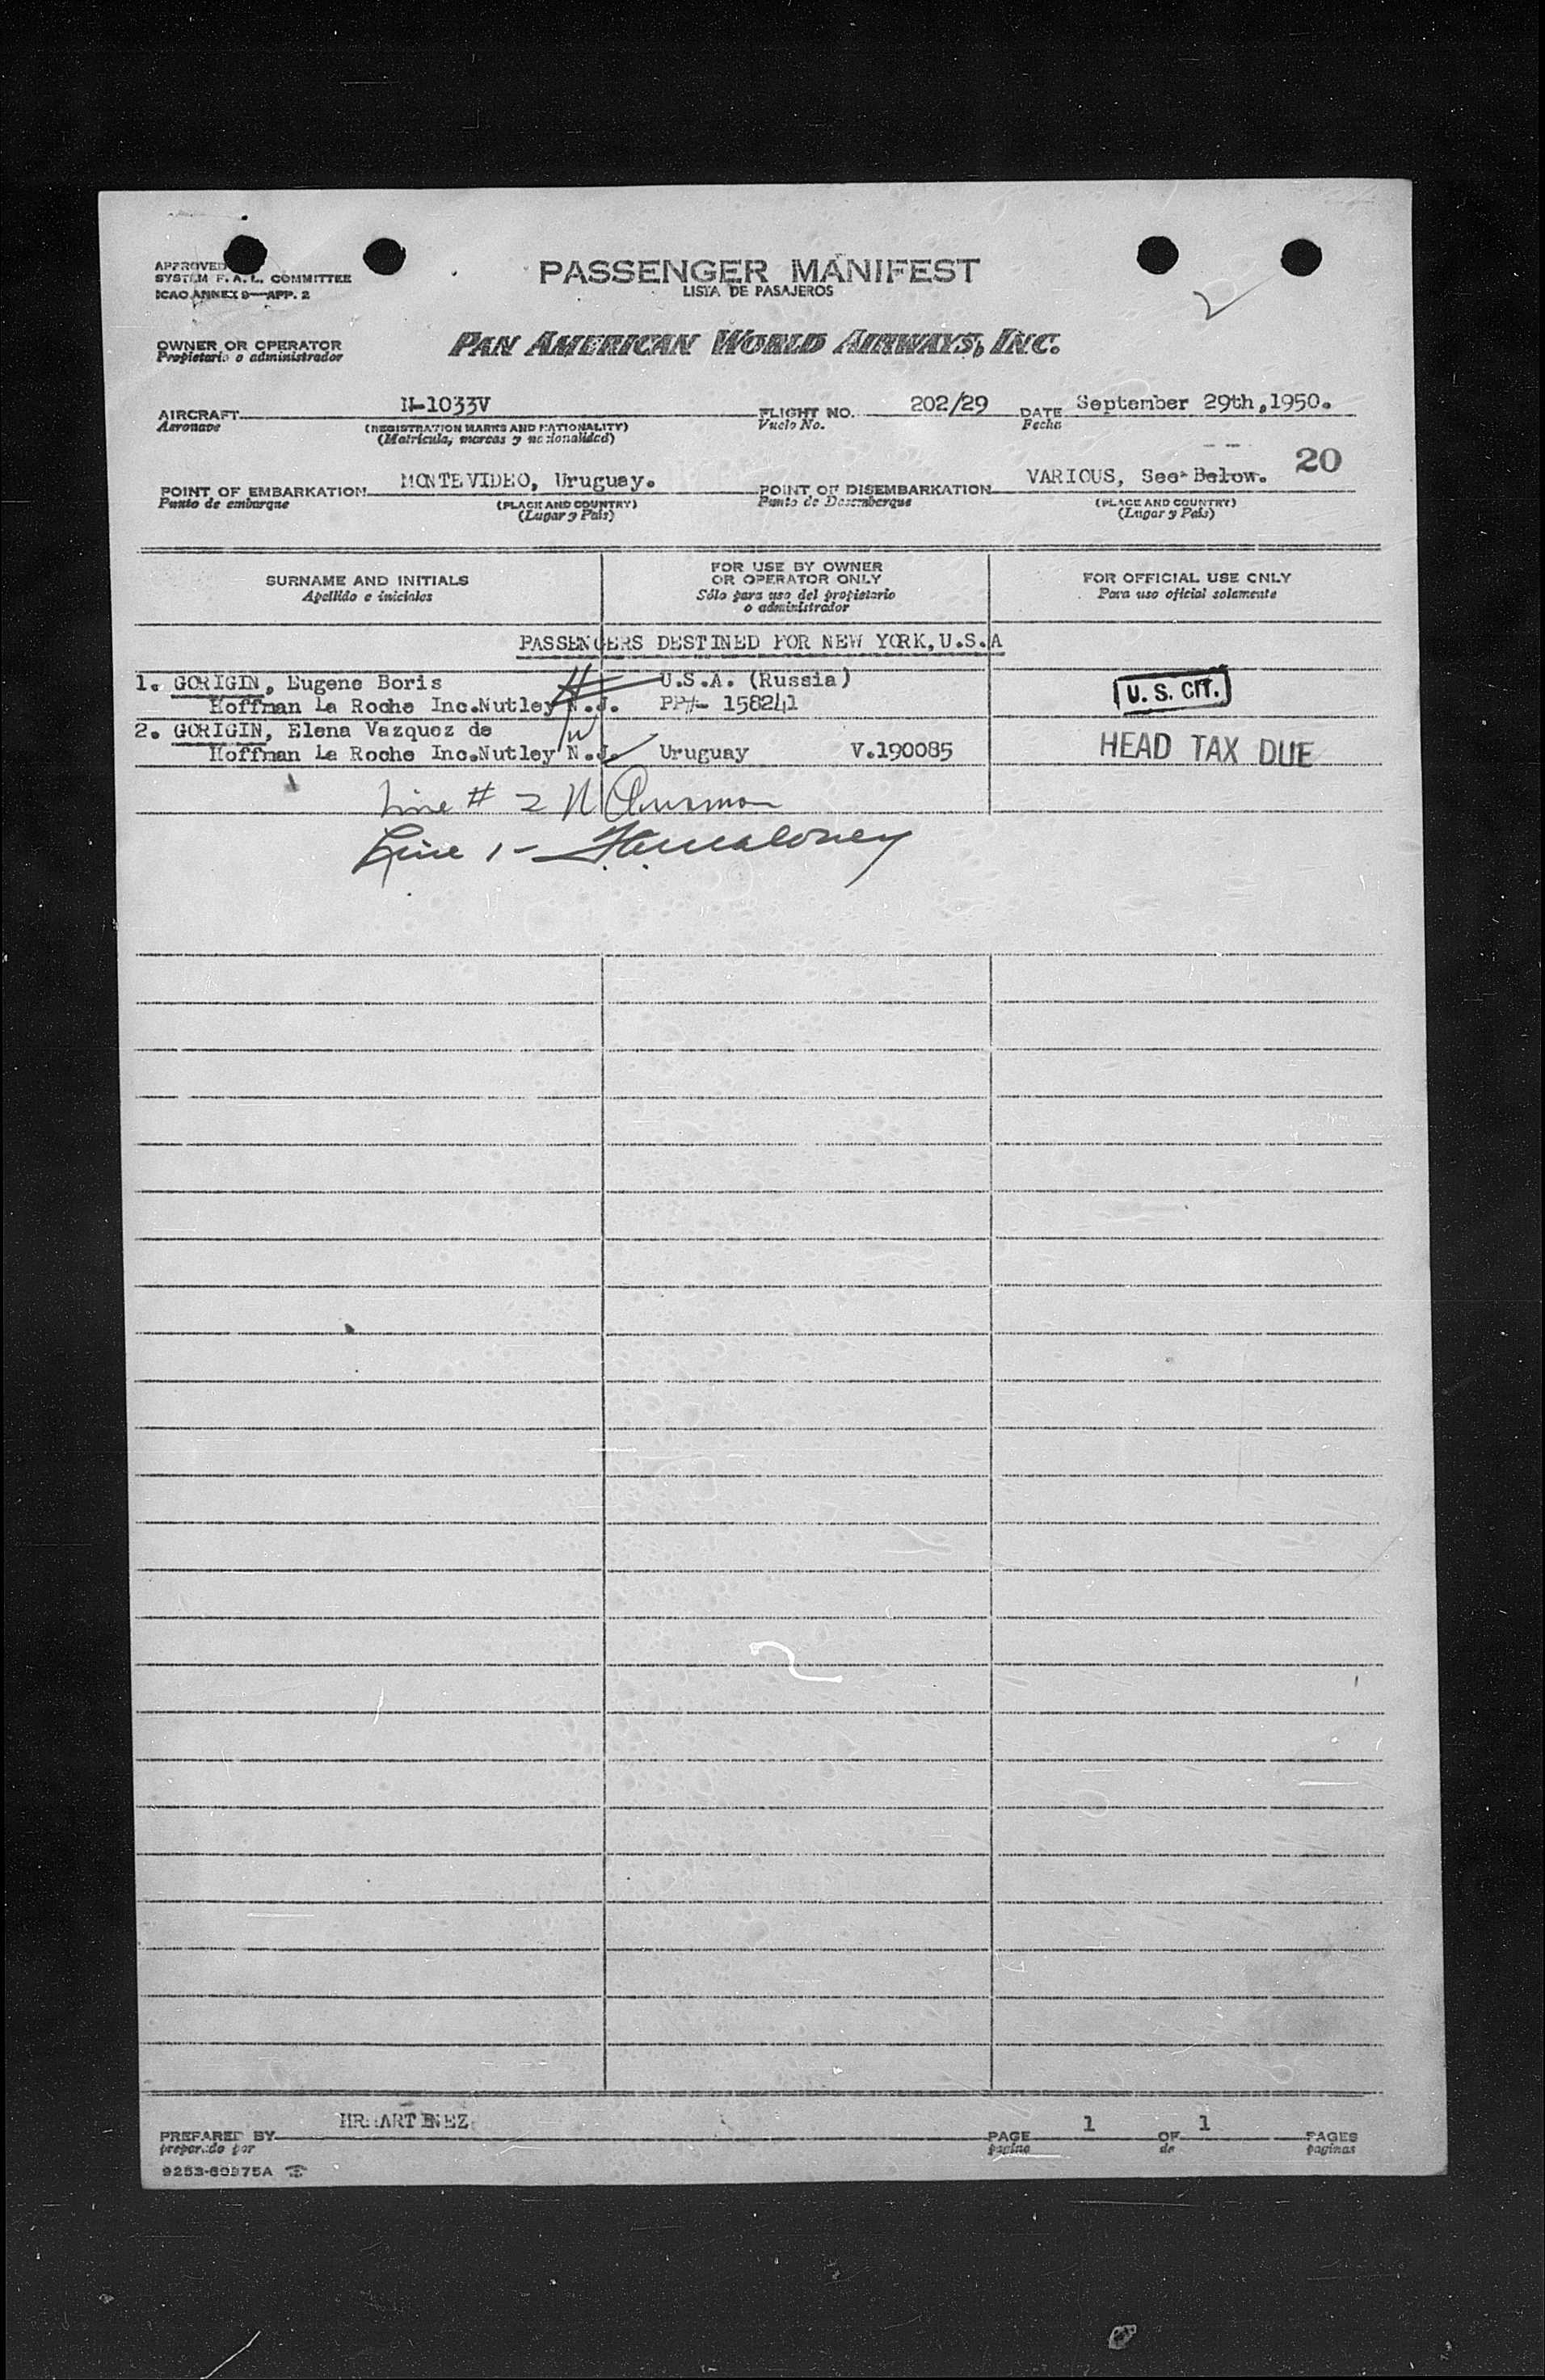 APPROVED
SYSTEM F. A. L. COMMITTEE
ICAO ANNEX 9—APP. 2
PASSENGER MANIFEST
LISTA DE PASAJEROS
OWNER OR OPERATOR
Propietario o administrador
PAN AMERICAN WORLD AIRWAYS, INC.
AIRCRAFT N-1033V FLIGHT NO. 202/29 DATE September 29th,1950.
Aeronave (REGISTRATION MARKS AND NATIONALITY) Vuelo No. Fecha
(Matrícula, marcas y nacionalidad)
20
POINT OF EMBARKATION MONTEVIDEO, Uruguay. POINT OF DISEMBARKATION VARIOUS, See Below.
Punto de embarque (PLACE AND COUNTRY) Punto de Desembarque (PLACE AND COUNTRY)
(Lugar y País) (Lugar y País)
SURNAME AND INITIALS
Apellido e iniciales
FOR USE BY OWNER
OR OPERATOR ONLY
Sólo para uso del propietario
o administrador
FOR OFFICIAL USE ONLY
Para uso oficial solamente
PASSENGERS DESTINED FOR NEW YORK,U.S.A
1. GORIGIN, Eugene Boris U.S.A. (Russia)
Hoffman La Roche Inc.Nutley N.J. PP#- 158241 U. S. CIT.
2. GORIGIN, Elena Vazquez de
Hoffman La Roche Inc.Nutley N.J. Uruguay V.190085 HEAD TAX DUE
Line # 2
Line 1 -
PREPARED BY HRMARTINEZ PAGE 1 OF 1 PAGES
preparado por página de páginas
9253-60975A